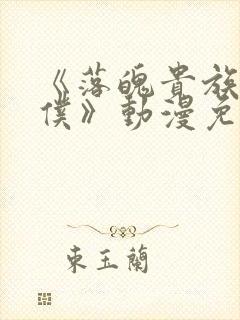 《落魄貴族
僕》動漫免
東玉蘭